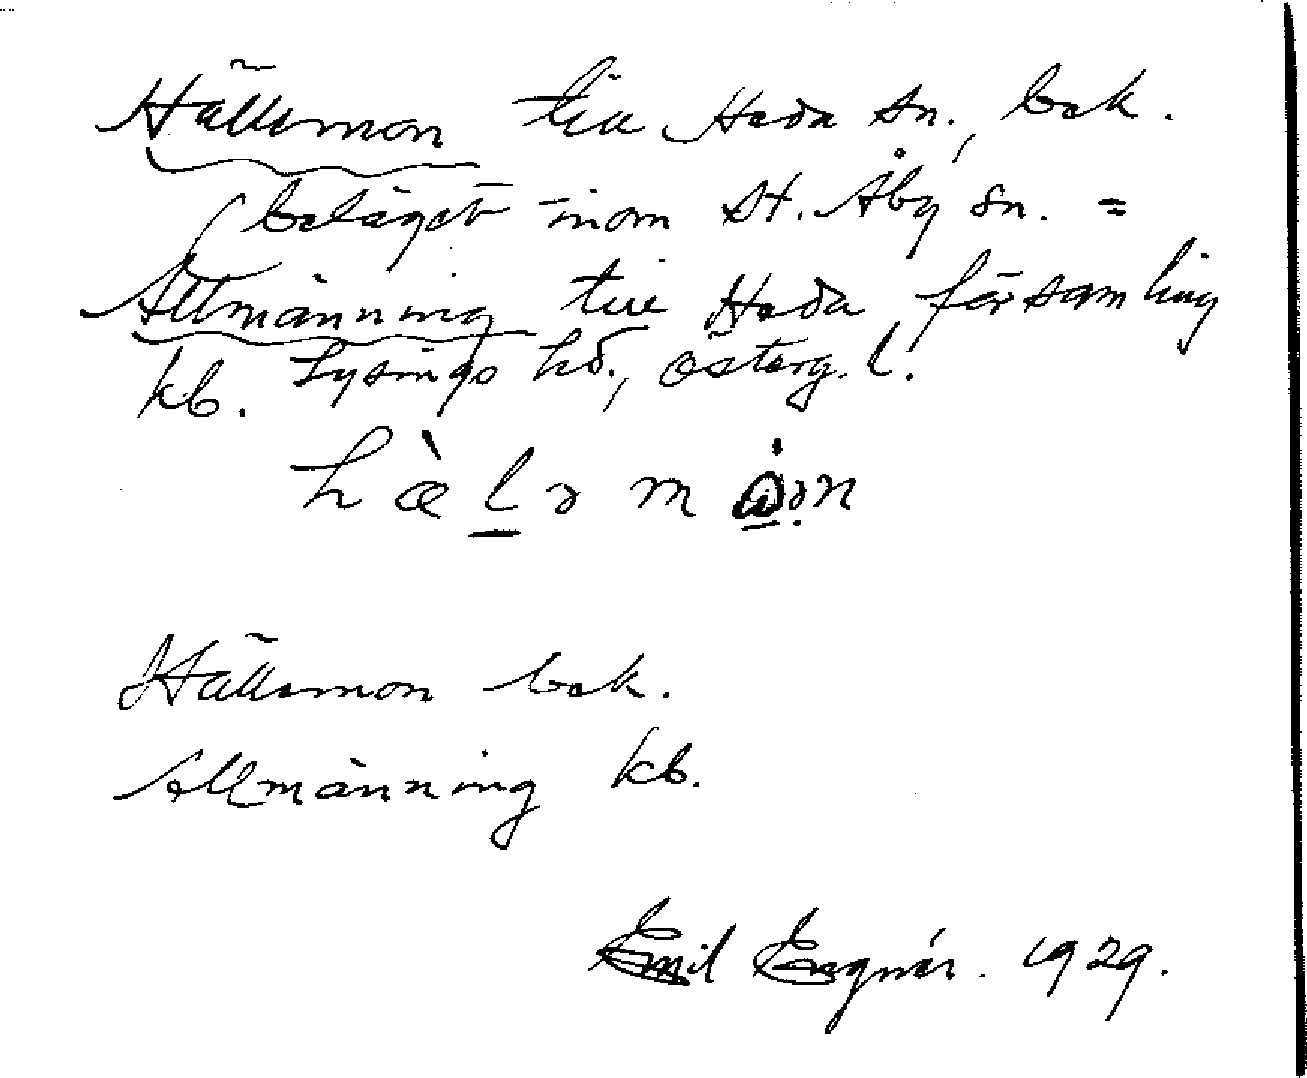 Hällemon till Heda sn., bek.
beläget inom St. Åby sn. =
Allmänning till Heda församling
kb. Lysings hd., Österg. l.
Hällemon bek.
Allmänning kb.
Emil Engnér. 1929.